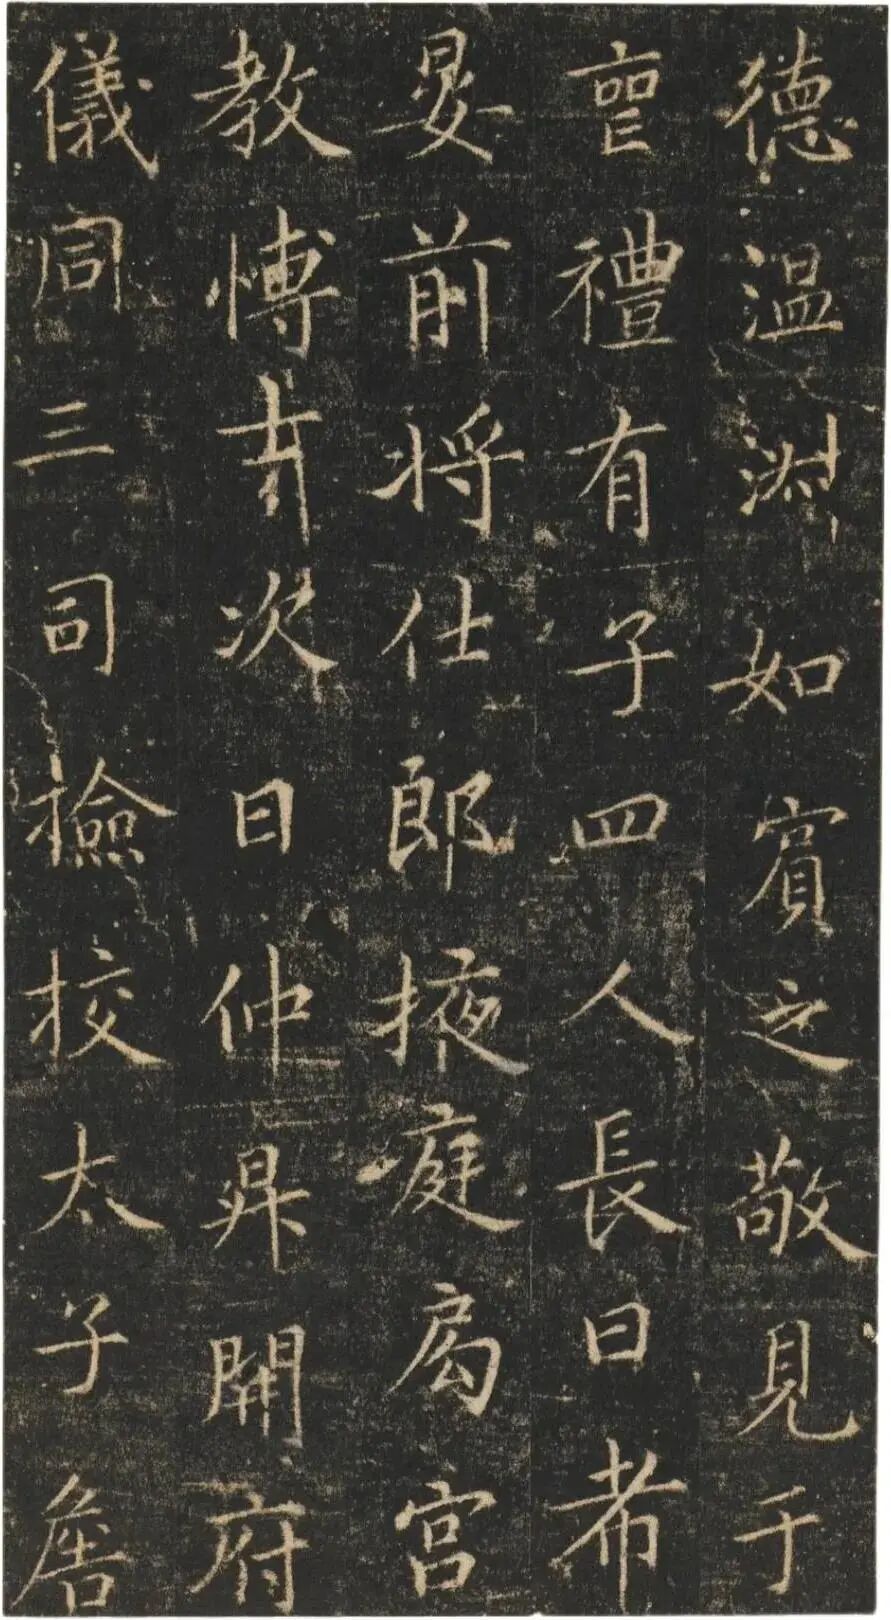 德温淑如賓之敬見于
禮有子四人長曰希
晏前将仕郎掖庭局宮
教博士次曰仲昇開府
儀同三司檢校太子詹